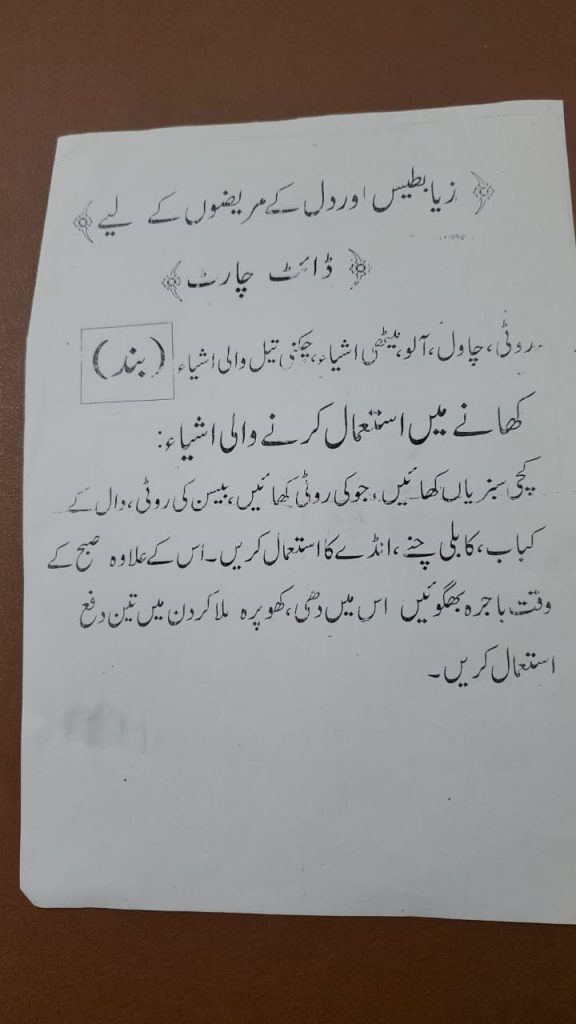 زیابطیس اور دل کے مریضوں کے لیے
ڈائٹ چارٹ
روٹی، چاول، آلو، میٹھی اشیاء، چکنی تیل والی اشیاء (بند)
کھانے میں استعمال کرنے والی اشیاء:
کچی سبزیاں کھائیں، جو کی روٹی کھائیں، بیسن کی روٹی، دال کے
کباب، کابلی چنے، انڈے کا استعمال کریں۔ اس کے علاوہ صبح کے
وقت باجرہ بھگوئیں اس میں دھی، کھوپرہ ملا کر دن میں تین دفع
استعمال کریں۔